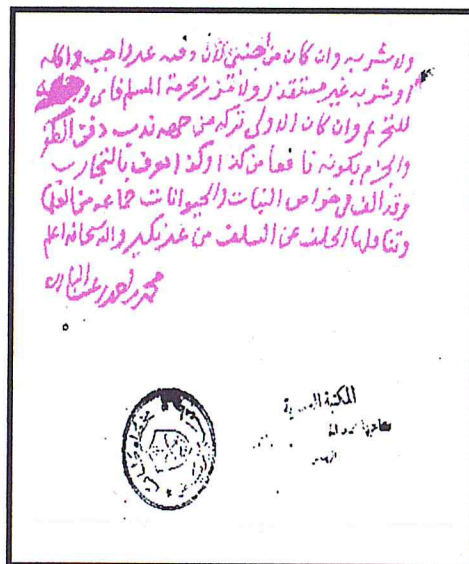 ولا شربه وان كان من اجنبي لان دفنه غير واجب واكله
او شربه غير مستقذر ولا مزر بحرمة المسلم فاي
للتحريم وان كان الاولى تركه من جهه ندب دفن الظفر
والجزم بكونه نافعا من كذا وكذا هوف بالتجارب
وقد الف في خواص النبات والحيوانات جماعه من العلما
وتناولها الخلف عن السلف من غير نكير والله سبحانه اعلم
محمد بن احمد بن عبد الباري
المكتبة